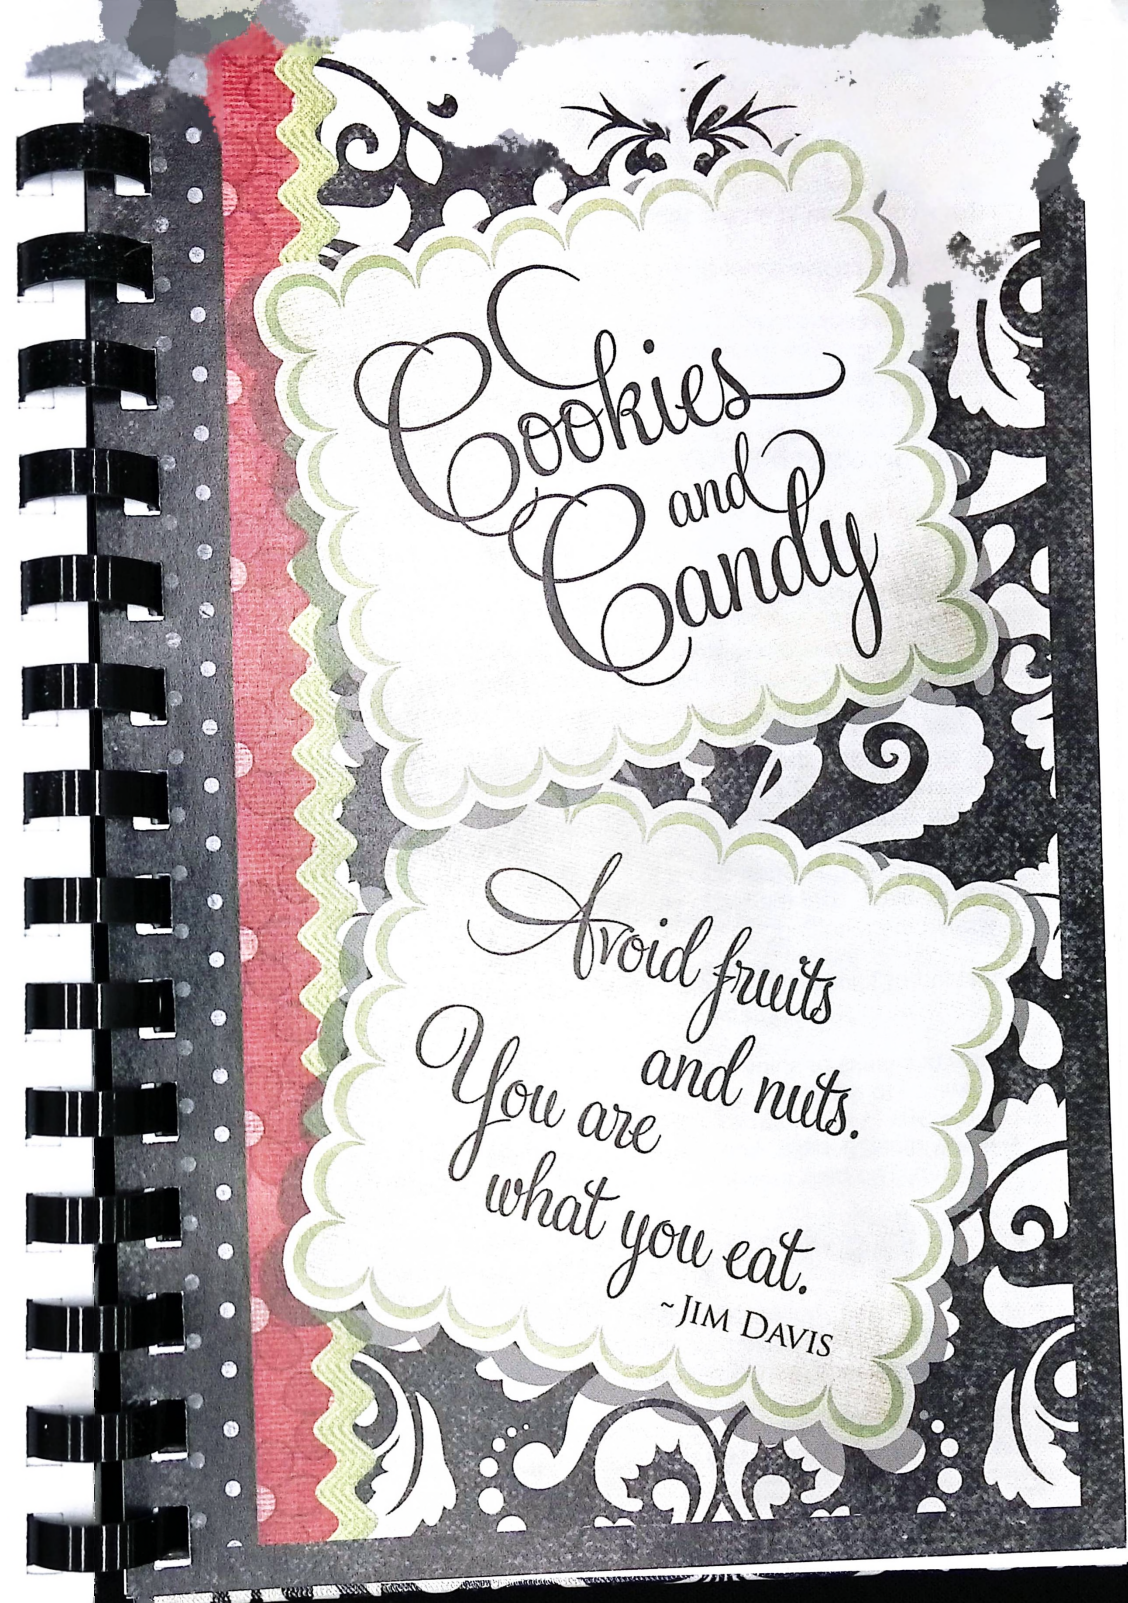 Cookies
and
Candy
Avoid fruits
and nuts.
You are
what you eat.
~JIM DAVIS